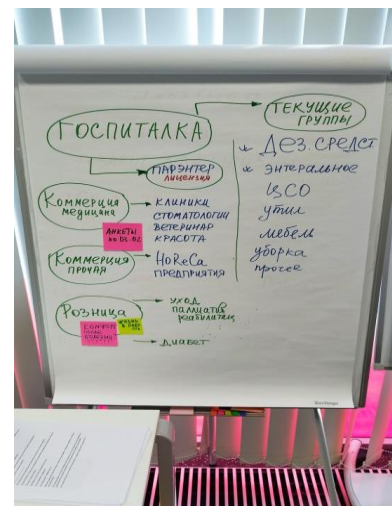 ГОСПИТАЛКА
ТЕКУЩИЕ
ГРУППЫ
ПАРЭНТЕР
ЛИЦЕНЗИЯ
* ДЕЗ. СРЕДСТ
* ЭНТЕРАЛЬНОЕ
ЦСО
УТИЛ
МЕБЕЛЬ
УБОРКА
ПРОЧЕЕ
КОММЕРЦИЯ
МЕДИЦИНА
АНКЕТЫ
КЛИНИКИ
СТОМАТОЛОГИИ
ВЕТЕРИНАР
КРАСОТА
КОММЕРЦИЯ
ПРОЧАЯ
HoReCa
ПРЕДПРИЯТИЯ
РОЗНИЦА
УХОД
ПАЛЛИАТИВ
РЕАБИЛИТАЦ
ДИАБЕТ